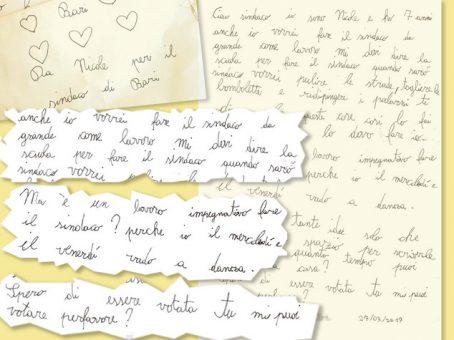 Bari
Da Nicole per il
sindaco di Bari
Ciao sindaco io sono Nicole e ho 7 anni
anche io vorrei fare il sindaco da
grande come lavoro mi devi dire la
scuola per fare il sindaco quando sarò
sindaco vorrei pulire le strade, togliere le
bombolette e ridipingere i palazzi
queste cose così lo fai
lo devo fare io
lavoro impegnativo fare
perche io il mercoledì e
il venerdì vado a danza.
tante idee solo che
spazio per scriverle
quanto tempo puoi
a casa?
essere votata tu mi puoi
27/03/2017
anche io vorrei fare il sindaco da
grande come lavoro mi devi dire la
scuola per fare il sindaco quando sarò
sindaco vorrei
Ma è un lavoro impegnativo fare
il sindaco? perche io il mercoledì e
il venerdì vado a danza.
Spero di essere votata tu mi puoi
votare perfavore?